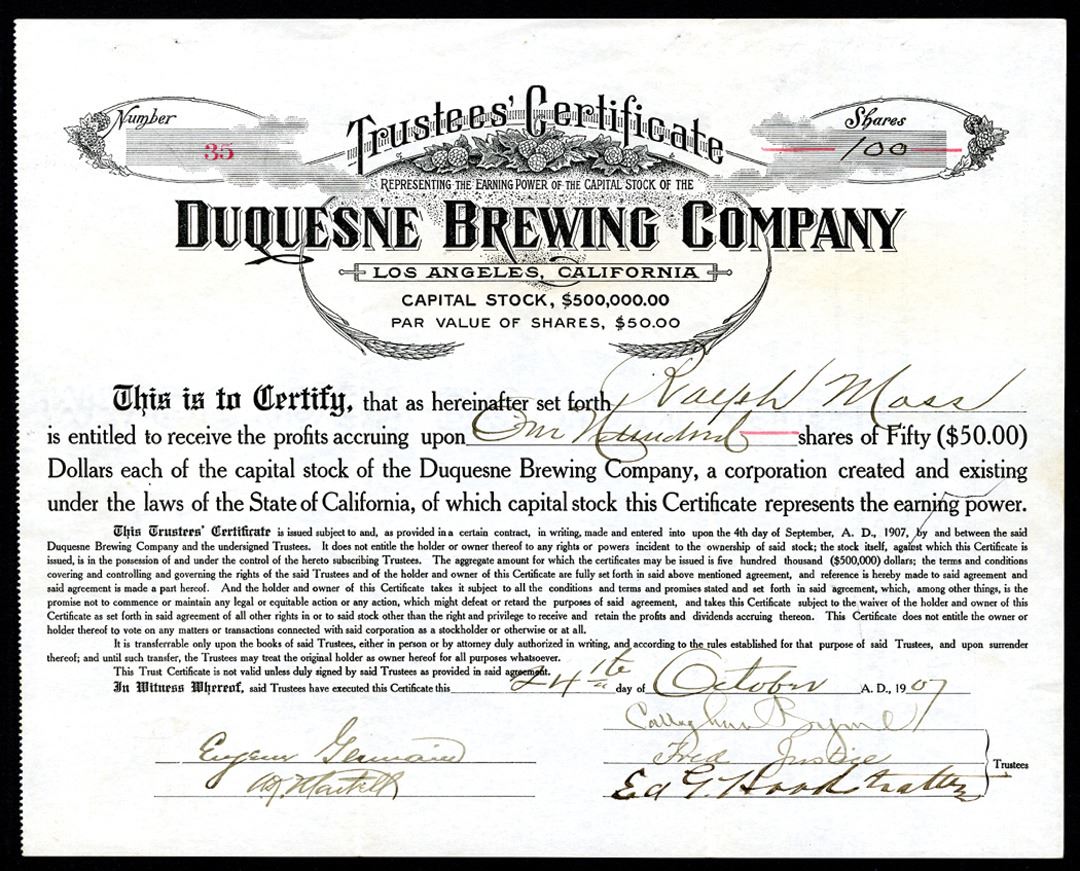 Number
35
Trustees' Certificate
Shares
100
Representing the Earning Power of the Capital Stock of the
Duquesne Brewing Company
LOS ANGELES, CALIFORNIA
CAPITAL STOCK, $500,000.00
PAR VALUE OF SHARES, $50.00
This is to Certify, that as hereinafter set forth Ralph Moss
is entitled to receive the profits accruing upon One Hundred shares of Fifty ($50.00)
Dollars each of the capital stock of the Duquesne Brewing Company, a corporation created and existing
under the laws of the State of California, of which capital stock this Certificate represents the earning power.
This Trustees' Certificate is issued subject to and, as provided in a certain contract, in writing, made and entered into upon the 4th day of September, A. D., 1907, by and between the said
Duquesne Brewing Company and the undersigned Trustees. It does not entitle the holder or owner thereof to any rights or powers incident to the ownership of said stock; the stock itself, against which this Certificate is
issued, is in the possession of and under the control of the hereto subscribing Trustees. The aggregate amount for which the certificates may be issued is five hundred thousand ($500,000) dollars; the terms and conditions
covering and controlling and governing the rights of the said Trustees and of the holder and owner of this Certificate are fully set forth in said above mentioned agreement, and reference is hereby made to said agreement and
said agreement is made a part hereof. And the holder and owner of this Certificate takes it subject to all the conditions and terms and promises stated and set forth in said agreement, which, among other things, is the
promise not to commence or maintain any legal or equitable action or any action, which might defeat or retard the purposes of said agreement, and takes this Certificate subject to the waiver of the holder and owner of this
Certificate as set forth in said agreement of all other rights in or to said stock other than the right and privilege to receive and retain the profits and dividends accruing thereon. This Certificate does not entitle the owner or
holder thereof to vote on any matters or transactions connected with said corporation as a stockholder or otherwise or at all.
It is transferrable only upon the books of said Trustees, either in person or by attorney duly authorized in writing, and according to the rules established for that purpose of said Trustees, and upon surrender
thereof; and until such transfer, the Trustees may treat the original holder as owner hereof for all purposes whatsoever.
This Trust Certificate is not valid unless duly signed by said Trustees as provided in said agreement.
In Witness Whereof, said Trustees have executed this Certificate this 24th day of October A. D., 1907
Callaghan Byrne
Eugene Germain
Fred Justice
Trustees
Martell
Ed G. Hookstratten